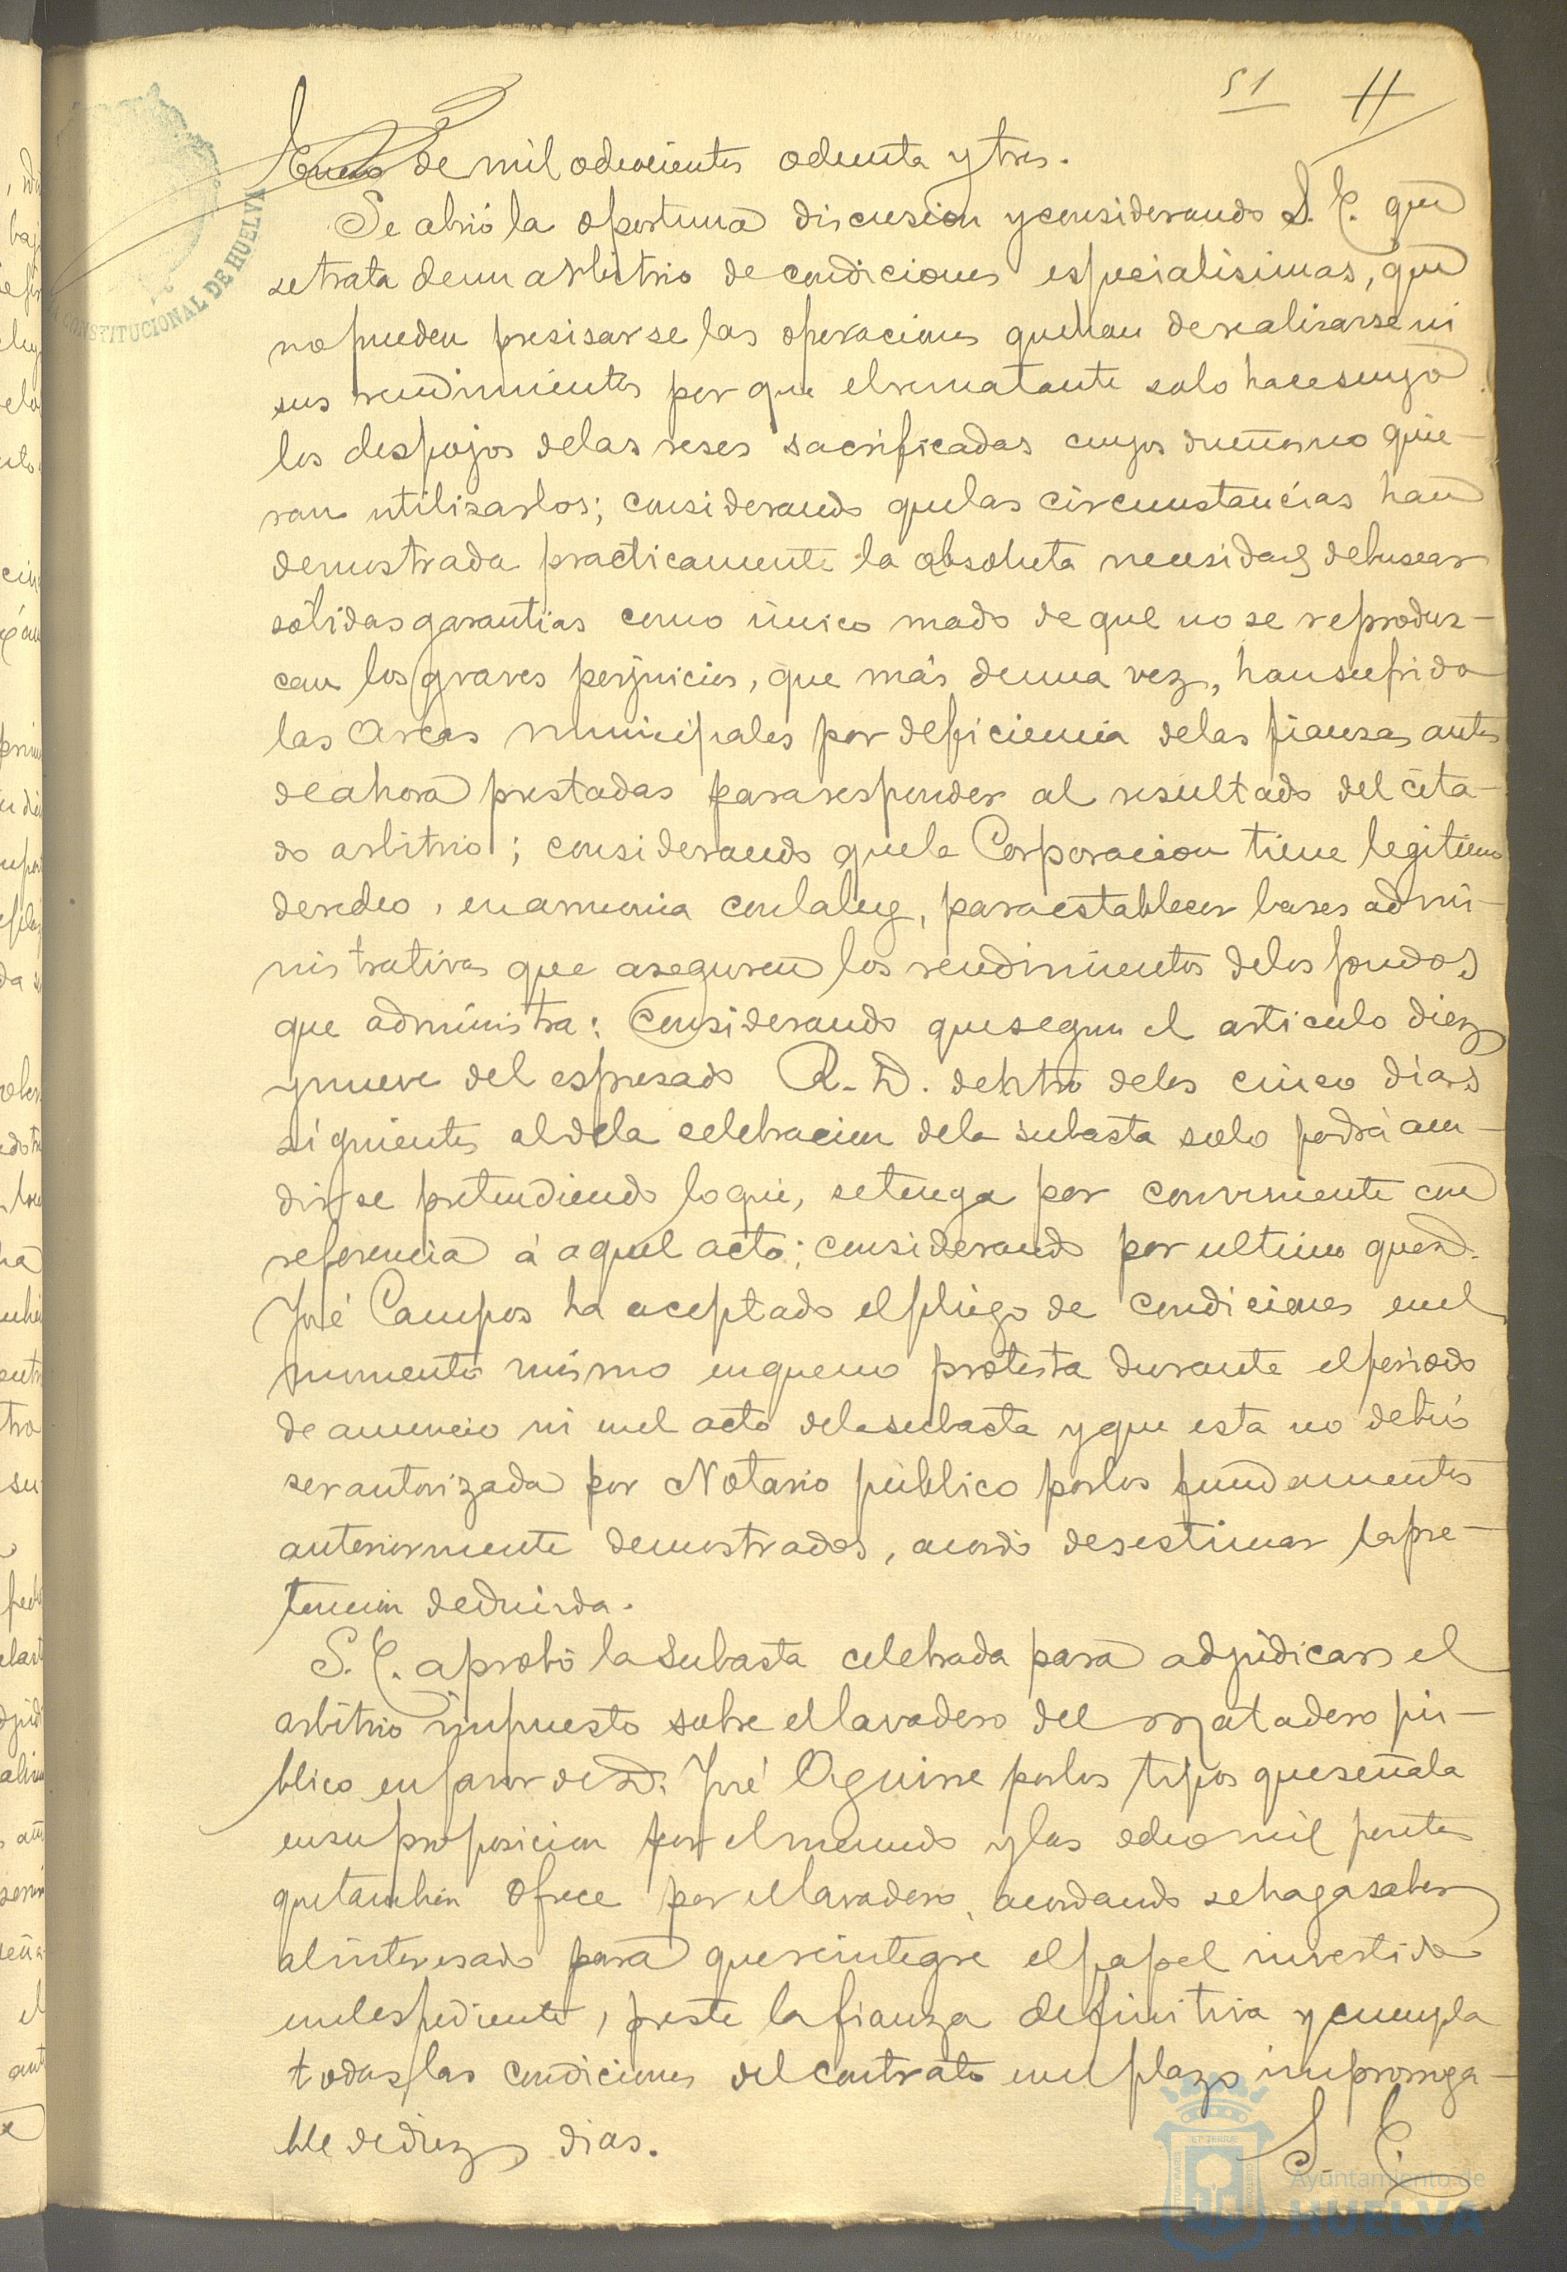 51 11
Enero de mil ochocientos ochenta y tres.
Se abrió la oportuna discusion y considerando S. E. que
se trata de un arbitrio de condiciones especialisimas, que
no pueden presisarse las operaciones que han de realisarse ni
sus rendimientos por que el rematante solo hace suyo
los despojos de las reses sacrificadas cuyos dueños no quie-
ran utilisarlos; considerando que las circunstancias han
demostrado practicamente la absoluta necesidad de buscar
sólidas garantias como único modo de que no se reprodus-
can los graves perjuicios, que más de una vez, han sufrido
las Arcas municipales por deficiencia de las fiansas antes
de ahora prestadas para responder al resultado del cita-
do arbitrio; considerando que la Corporacion tiene legitimo
derecho, en armonia con la ley, para establecer bases admi-
nistrativas que aseguren los rendimientos de los fondos
que administra: Considerando que segun el articulo diez
y nueve del espresado R. D. dentro de los cinco dias
siguientes al de la celebracion de la subasta solo podrá acu-
dirse pretendiendo lo que, se tenga por conveniente con
referencia á aquel acto; considerando por ultimo que D.
José Campos ha aceptado el pliego de condiciones en el
momento mismo en que no protesta durante el periodo
de anuncio ni en el acto de la subasta y que esta no debió
ser autorizada por Notario público por los fundamentos
anteriormente demostrados, acordó desestimar la pre-
tencion deducida.
S. E. aprobó la subasta celebrada para adjudicar el
arbitrio impuesto sobre el lavadero del Matadero pú-
blico en favor de D. José Aguirre por los tipos que señala
en su proposicion por el menudo y las ocho mil pesetas
que tambien ofrece por el lavadero, acordando se haga saber
al interesado para que reintegre el papel invertido
en el espediente, preste la fianza definitiva y cumpla
todas las condiciones del contrato en el plazo improrroga-
ble de diez dias.
S. E.
CONSTITUCIONAL DE HUELVA
Ayuntamiento de
HUELVA